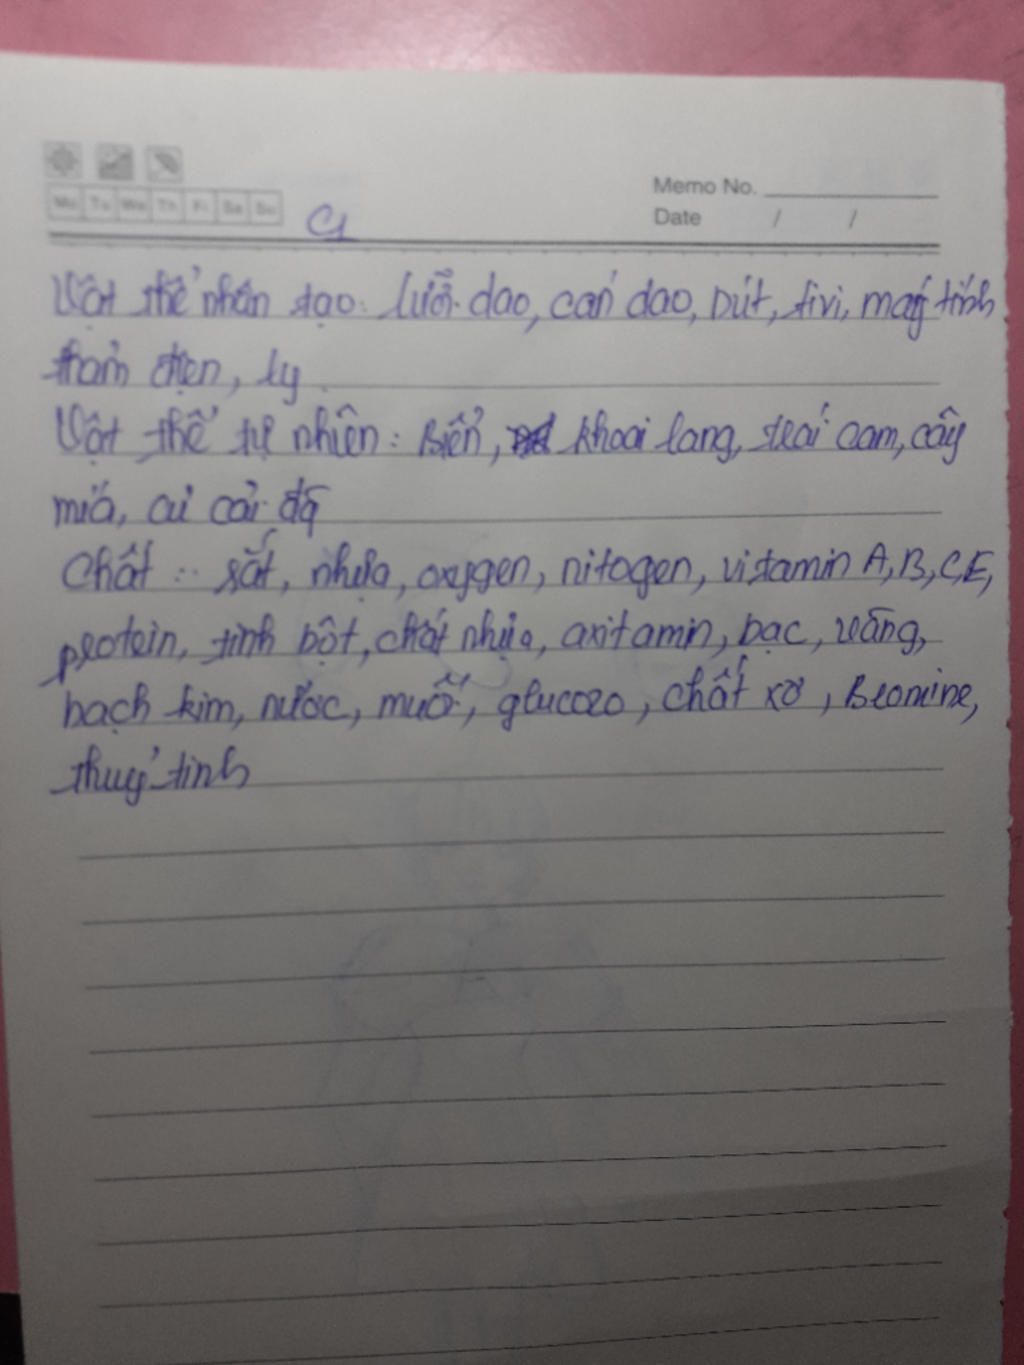 Mo Tu We Th Fr Sa Su
C1
Memo No.
Date / /
Vật thể nhân tạo: lưỡi dao, cán dao, bút, tivi, máy tính
thảm điện, ly
Vật thể tự nhiên: Biển, khoai lang, trái cam, cây
mía, củ cải đỏ
Chất: sắt, nhựa, oxygen, nitogen, vitamin A, B, C, E,
protein, tinh bột, chất nhựa, axitamin, bạc, vàng,
bạch kim, nước, muối, glucozo, chất xơ, Bromine,
thuỷ tinh